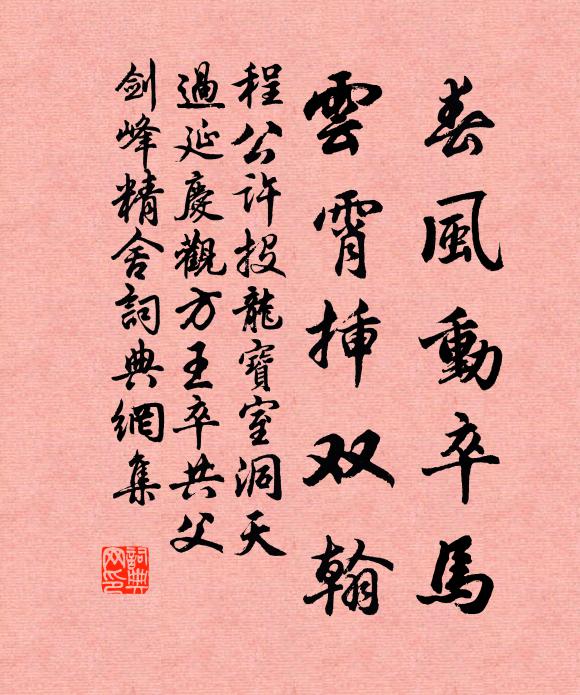 春風動卒馬
雲霄揷双翰
程公許投龍寶室洞天
過延慶觀方王卒共父
劍峰精舍詞典網集
詞典
网印